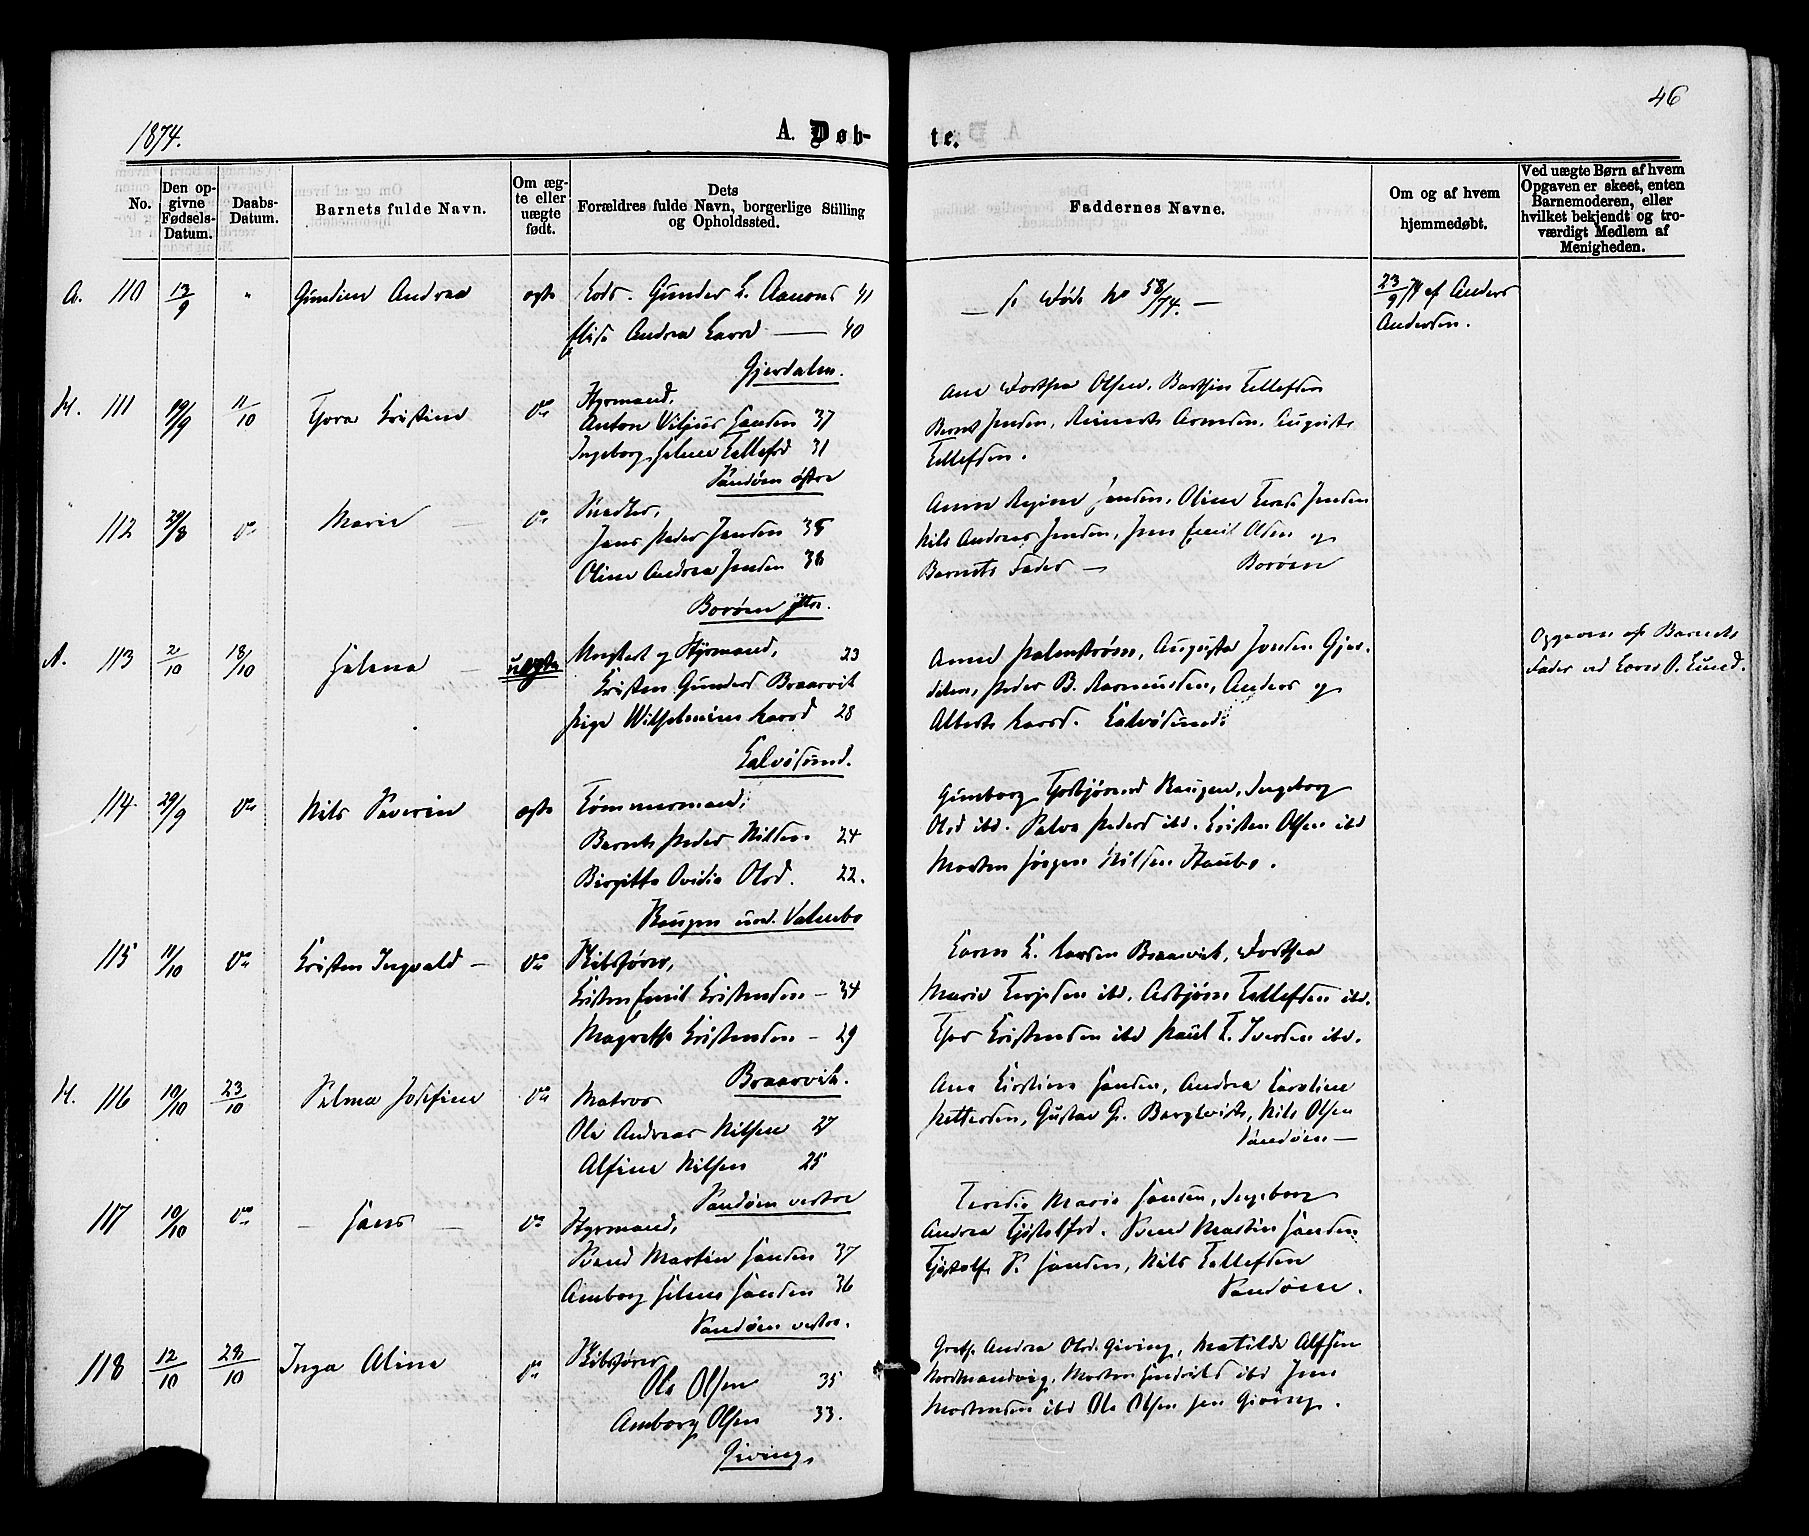 46
1874.
A. Døb-
te.
No.
Den op-
givne
Fødsels-
Datum.
Daabs-
Datum.
Barnets fulde Navn.
Om æg-
te eller
uægte
født.
Dets
Forældres fulde Navn, borgerlige Stilling
og Opholdssted.
Faddernes Navne.
Om og af hvem
hjemmedøbt.
Ved uægte Børn af hvem
Opgaven er skeet, enten
Barnemoderen, eller
hvilket bekjendt og tro-
værdigt Medlem af
Menigheden.
A. 110 13/9 " Gundine Andrea ægte Gunder L. Aanons 41
Andrea Larsd — 40
Gjerdalen.
— Føds No 58/74. —
23/9 74 af Anders
Andersen.
H. 111 19/9 11/10 Tora Kristine do Styrmand,
Anton Viljus Hansen 37
Ingeborg Helene Tellefsd 31
Sandøen østre
Ane Dorthea Olsen, Berthine Tellefsen
Bernt Jensen, Reinert Arnesen, Auguste
Tellefsen.
" 112 29/8 do Marie — do Snedker,
Jens Peder Jensen 35
Oline Andrea Jensen 38
Borøen østre.
Anne Regine Jensen, Oline Jensen
Nils Andreas Jensen, Jens Emil Olsen og
Barnets Fader — Borøen
A. 113 2/10 18/10 Helena — uægte Ungkarl og Styrmand, 23
Kristen Gunders Braarvik
Pige Wilhelmine Larsd 28
Kalvøsund.
Anne Palmstrøm, Augusta Jensen Gjer-
dalen, Peder B. Rasmussen, Anders og
Alberte Larsd. Kalvøsund.
Opgaven af Barnets
Fader ved Lars O. Lund.
114 29/9 do Nils Severin ægte Tømmermand,
Bernt Peder Nilsen 24
Birgitte Ovidia Olsd. 22.
Haugen und. Valenbo
Gunborg Torbjørnsd Haugen, Ingeborg
Olsd ibd. Salve Peders ibd. Kristen Olsen ibd
Morten Jørgen Nilsen Staubo.
115 11/10 do Kristen Ingvald — do Skibsfører,
Kristen Emil Kristensen — 34
Magrethe Kristensen — 29
Braarvik.
Karen L. Larsen Braarvik, Dorthea
Marie Terjesen ibd. Asbjørn Tellefsen ibd.
Tor Kristensen ibd Paul T. Iversen ibd.
H. 116 10/10 23/10 Selma Josefine do Matros
Ole Andreas Nilsen 27
Alfine Nilsen 25
Sandøen vestre
Ane Kirstine Hansen, Andrea Karoline
Pettersen, Gustav G. Bergkvist, Nils Olsen
Sandøen —
117 10/10 do — Hans — do Styrmand,
Svend Martin Hansen 37
Amborg Helene Hansen 36
Sandøen vestre.
Teresia Marie Hansen, Ingeborg
Andrea Tjøstolfsd. Svend Martin Hansen
Tjøstolf S. Hansen, Nils Tellefsen
Sandøen.
118 12/10 28/10 Inga Alina do Skibsfører
Ole Olsen 35
Amborg Olsen 33.
Giving,
Grethe Andrea Olsd. Giving, Matilde Alfsen
Nordmandvig, Morten ibd Jens
Mortensen ibd Ole Olsen sen Giving.